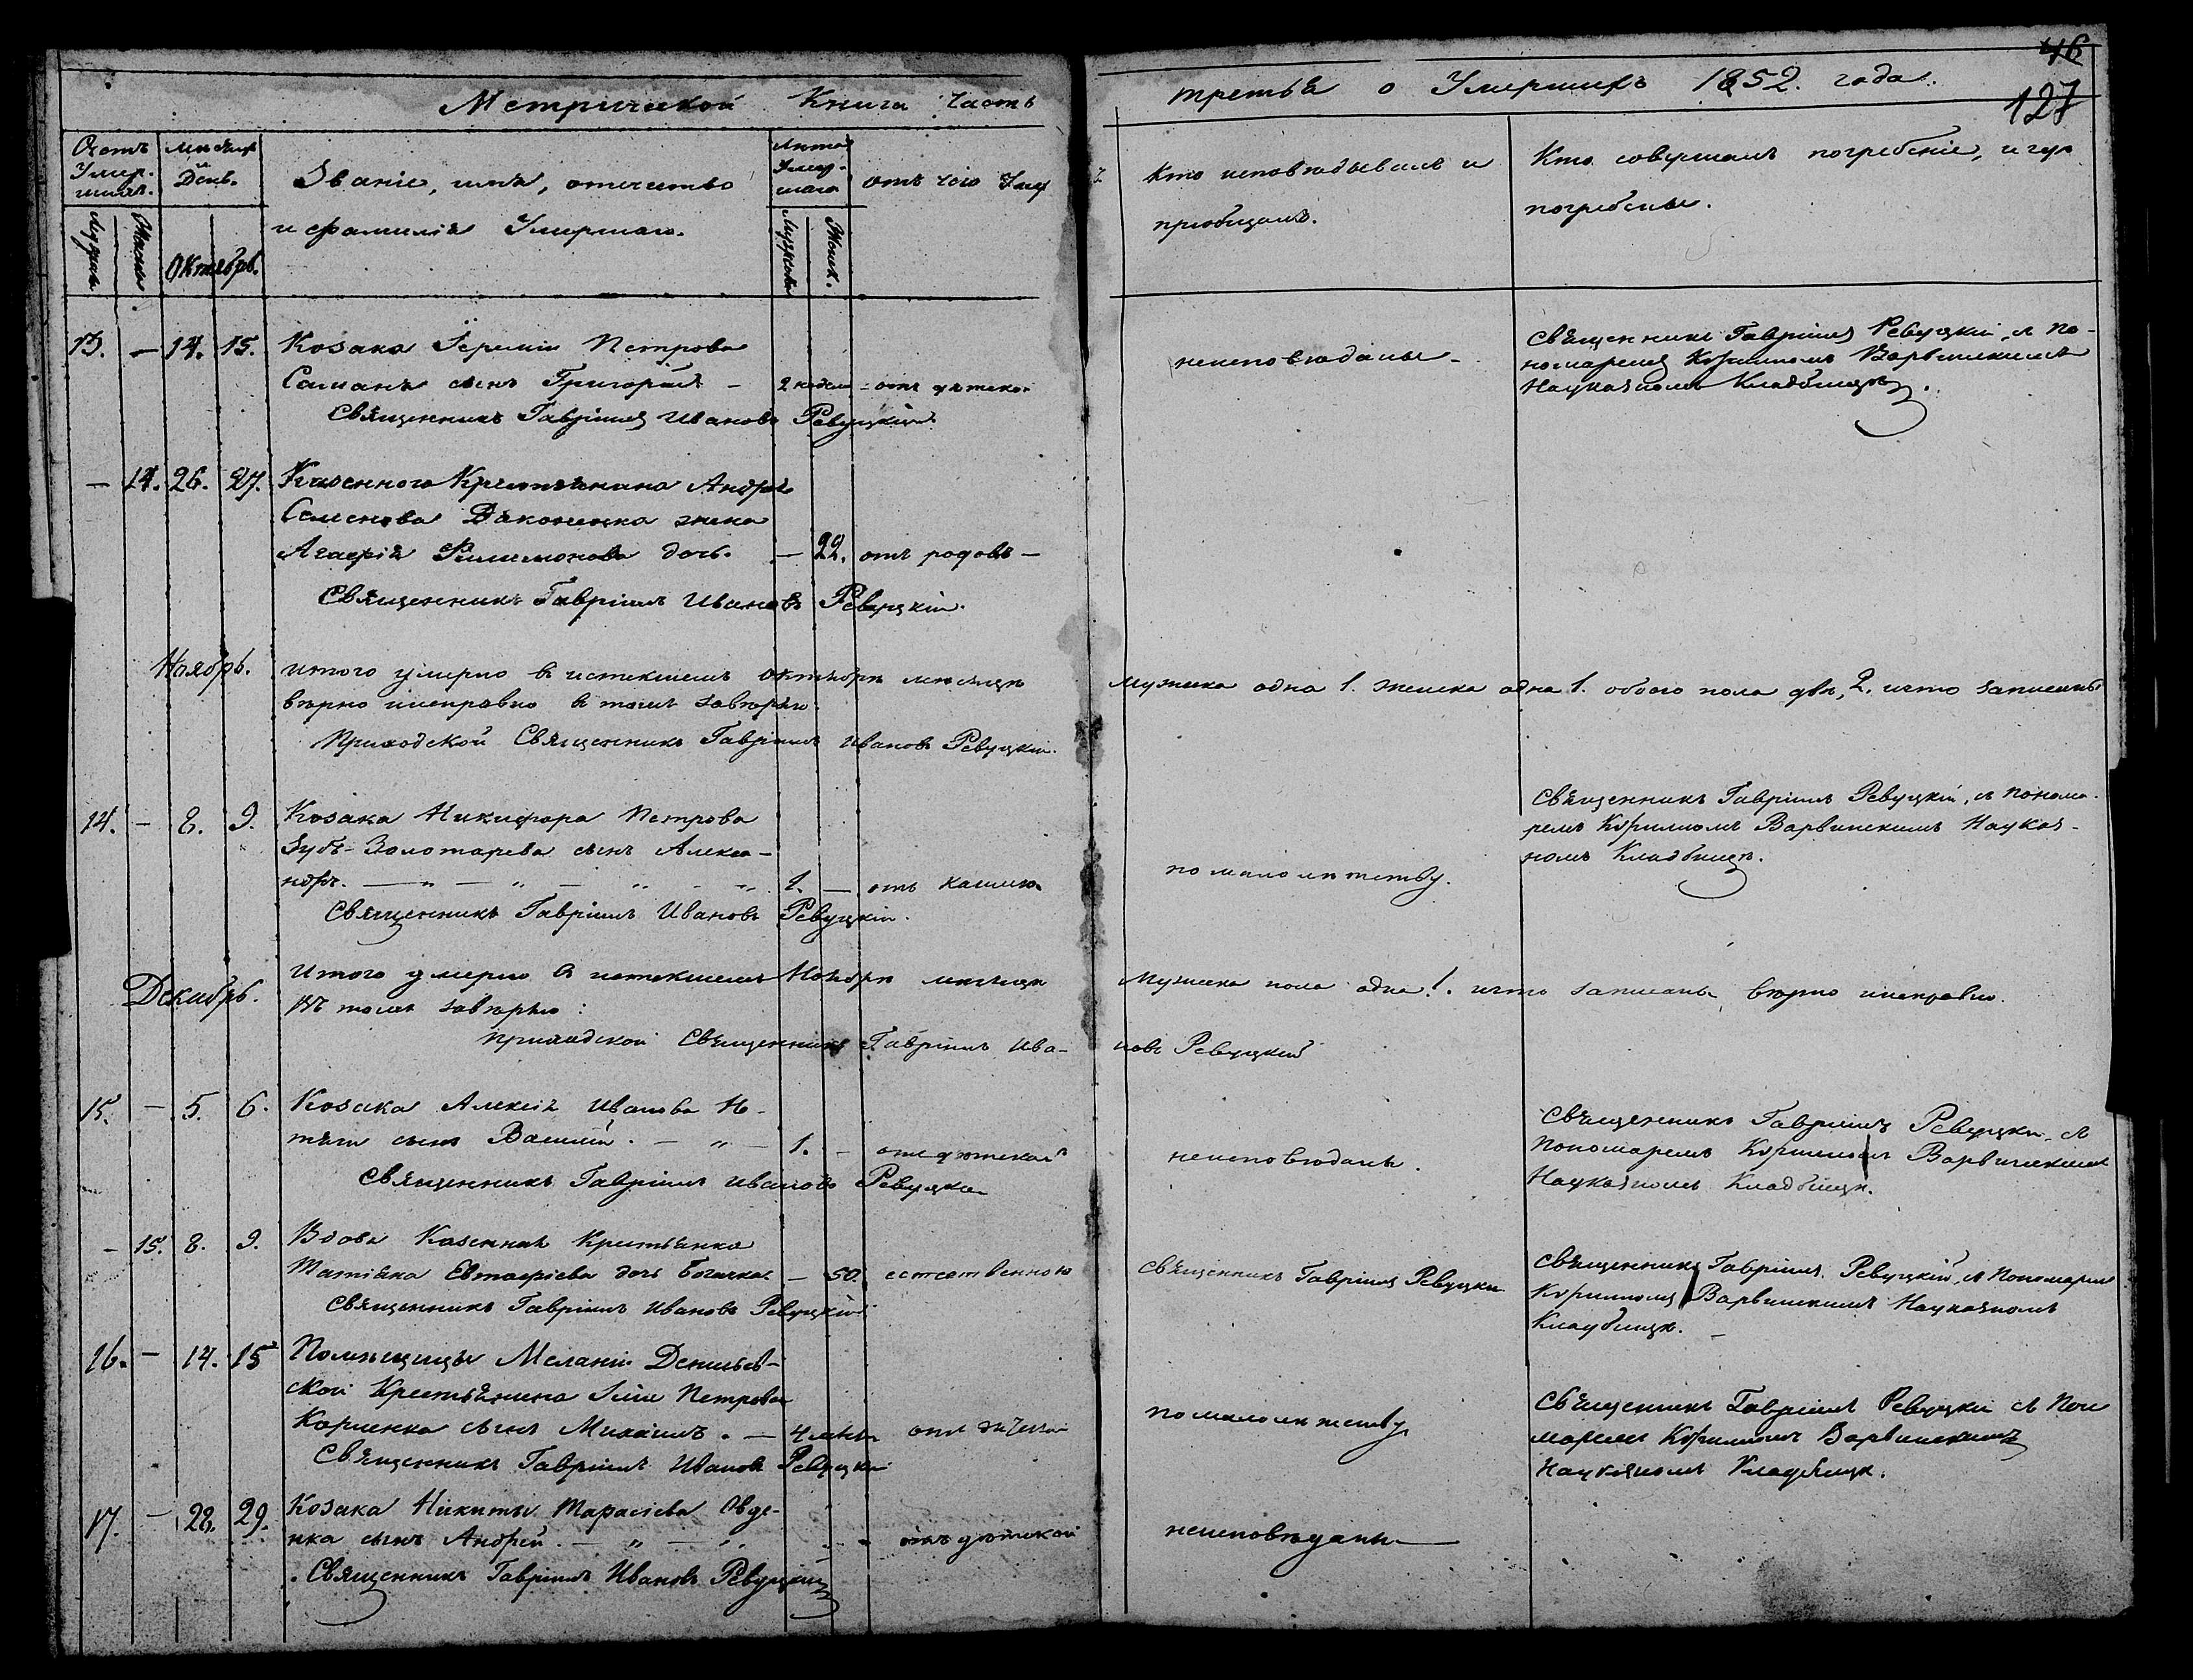 46
127
Метрической Книги часть
третья о Умершихъ 1852. года.
Счетъ Умер-шихъ.
Мѣсяцъ и День.
Званіе, имя, отечество
и фамилія Умершаго.
Лѣта Умер-шаго
отъ чего Умер
Кто исповѣдывалъ и
приобщалъ.
Кто совершалъ погребеніе, и гдѣ
погребены.
Мужеска
Женска
Октябрь.
Мужеска
Женск.
13. — 14. 15. Козака Іереміи Петрова
сынъ Григорій — 2 недели — отъ дѣтской
Священникъ Гавріилъ Ивановъ Ревуцкій.
неисповѣданы —
Священникъ Гавріилъ Ревуцкій, съ По-
номаремъ Варвинскимъ
Кладбищѣ.
— 14. 26. 27. Казенного Крестьянина Андрея
Семенова Дяконенка жена
Агафія Филимонова дочь. — 22. отъ родовъ —
Священникъ Гавріилъ Ивановъ Ревуцкій.
Ноябрь. итого умерло въ истекшемъ Октябрѣ мѣсяцѣ
мужеска одна 1. женска одна 1. обоего пола двѣ, 2. и что записаны
вѣрно и исправно въ томъ завѣряю
Приходской Священникъ Гавріилъ Ивановъ Ревуцкій.
14. — 8. 9. Козака Никифора Петрова
Зубъ-Золотарева сынъ Алекса-
ндръ. — „ — „ — „ - „ 1. — отъ кашлю
Священникъ Гавріилъ Ивановъ Ревуцкій.
по малолѣтству.
Священникъ Гавріилъ Ревуцкій, съ понома-
ремъ Варвинскимъ
Кладбищѣ.
Декабрь. Итого умерло въ истекшемъ Ноябрѣ мѣсяцѣ
Мужеска пола одна 1. и что записаны вѣрно и исправно.
въ томъ завѣряю:
приходской Священникъ Гавріилъ Ива-
новъ Ревуцкій
15. — 5. 6. Козака Алексія Иванова
сынъ Василій. — „ — 1. — отъ дѣтской
Священникъ Гавріилъ Ивановъ Ревуцкій
неисповѣданъ.
Священникъ Гавріилъ Ревуцкій, съ
Пономаремъ Варвинскимъ
Кладбищѣ.
— 15. 8. 9. Вдова Казенная Крестьянка
Татіяна Евтафіева дочь — 50. естественною
Священникъ Гавріилъ Ивановъ Ревуцкій
Священникъ Гавріилъ Ревуцкій
Священникъ Гавріилъ Ревуцкій, съ Пономаремъ
Варвинскимъ
Кладбищѣ. —
16. — 14. 15 Помѣщицы Меланіи
Крестьянина Іліи Петрова
сынъ Михаилъ. — 4 отъ
Священникъ Гавріилъ Ивановъ Ревуцкій
по малолѣтству
Священникъ Гавріилъ Ревуцкій съ Поно
маремъ Варвинскимъ
Кладбищѣ.
17. — 28. 29. Козака Никиты Тарасіева Овде-
нка сынъ Андрей. — „ — „ отъ дѣтской
Священникъ Гавріилъ Ивановъ Ревуцкій
неисповѣданъ —